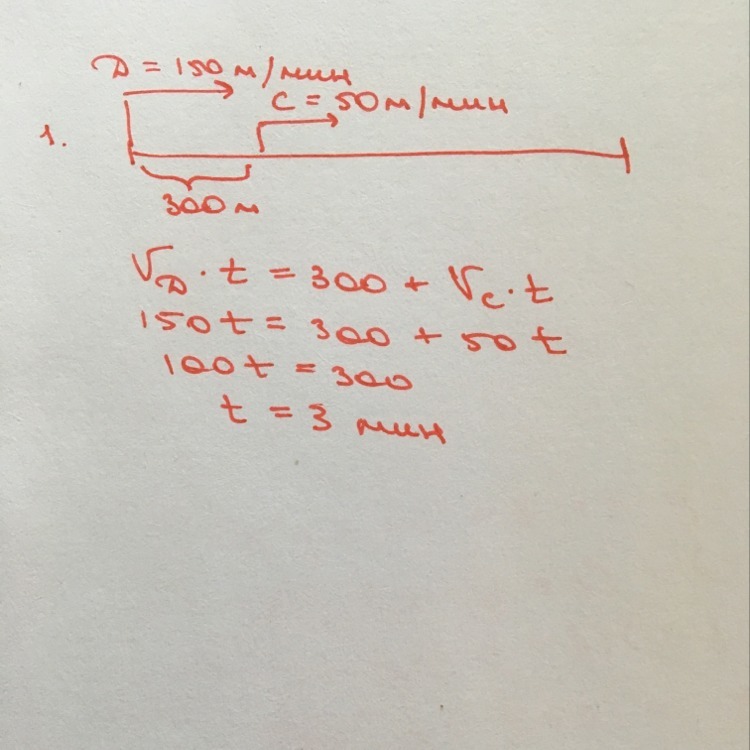 D = 150 м/мин
C = 50 м/мин
1.
300 м
V_D · t = 300 + V_C · t
150t = 300 + 50t
100t = 300
t = 3 мин